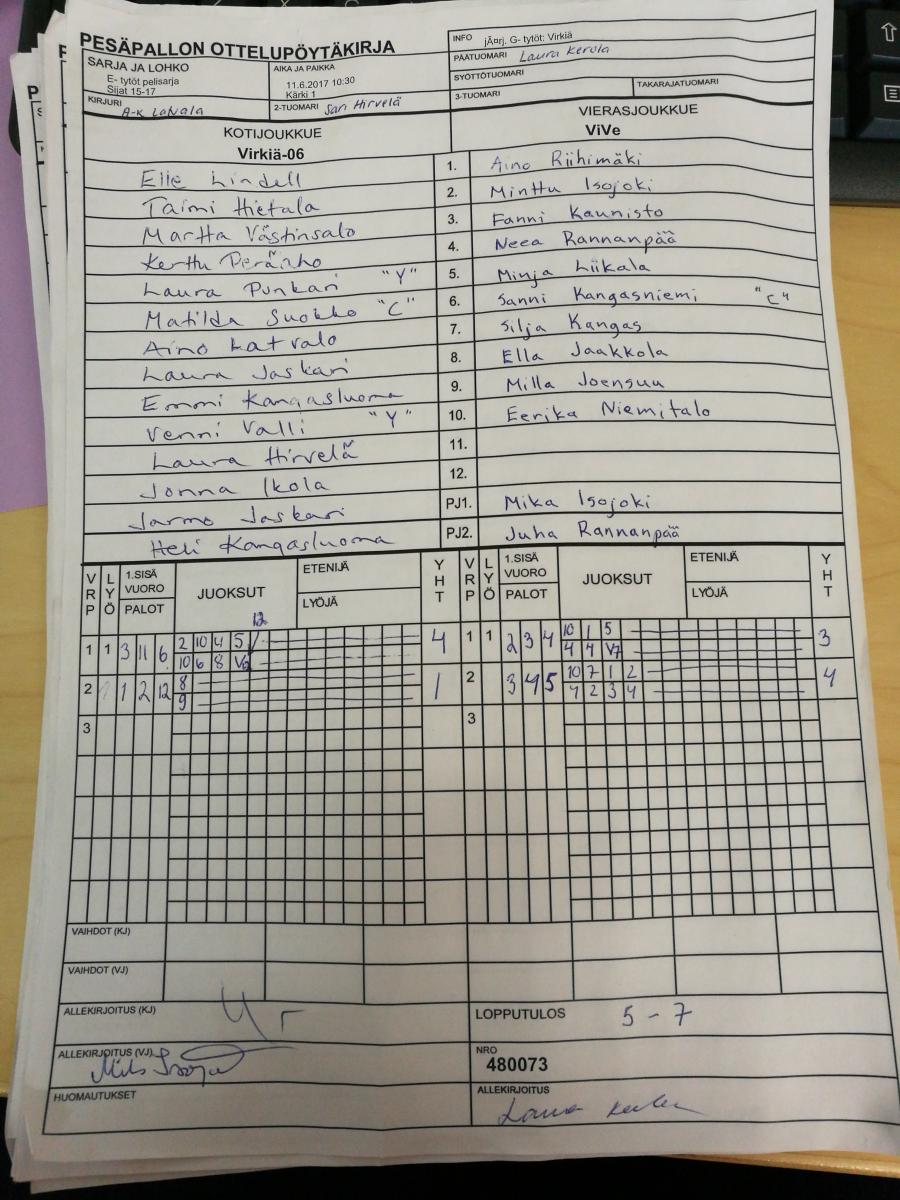 PESÄPALLON OTTELUPÖYTÄKIRJA
INFO jÃ¤rj. G- tytöt: Virkiä
PÄÄTUOMARI Laura Kerola
SYÖTTÖTUOMARI
3-TUOMARI TAKARAJATUOMARI
SARJA JA LOHKO
E- tytöt pelisarja
Sijat 15-17
AIKA JA PAIKKA
11.6.2017 10:30
Kärki 1
KIRJURI A-K
2-TUOMARI Sari Hirvelä
KOTIJOUKKUE VIERASJOUKKUE
Virkiä-06 ViVe
Elle Lindell 1. Aino Riihimäki
Taimi Hietala 2. Minttu Isojoki
Martta Västinsalo 3. Fanni Kaunisto
Kerttu Peränho 4. Neea Rannanpää
Laura Punkari "Y" 5. Minja Liikala
Matilda Suokko "C" 6. Sanni Kangasniemi "C"
Aino Latvalo 7. Silja Kangas
Laura Jaskari 8. Ella Jaakkola
Emmi Kangasluoma 9. Milla Joensuu
Venni Valli "Y" 10. Eerika Niemitalo
Laura Hirvelä 11.
Jonna Ikola 12.
Jarmo Jaskari PJ1. Mika Isojoki
Heli Kangasluoma PJ2. Juha Rannanpää
VRP LYÖ 1.SISÄ VUORO PALOT JUOKSUT ETENIJÄ LYÖJÄ YHT VRP LYÖ 1.SISÄ VUORO PALOT JUOKSUT ETENIJÄ LYÖJÄ YHT
12
1 1 3 11 6 2 10 4 5 4 1 1 2 3 4 10 1 5 3
10 6 8 V6 4 4 V7
2 1 2 12 8 1 2 3 4 5 10 7 1 2 4
9 4 2 3 4
3 3
VAIHDOT (KJ)
VAIHDOT (VJ)
ALLEKIRJOITUS (KJ) LOPPUTULOS 5 - 7
ALLEKIRJOITUS (VJ) NRO
480073
HUOMAUTUKSET ALLEKIRJOITUS